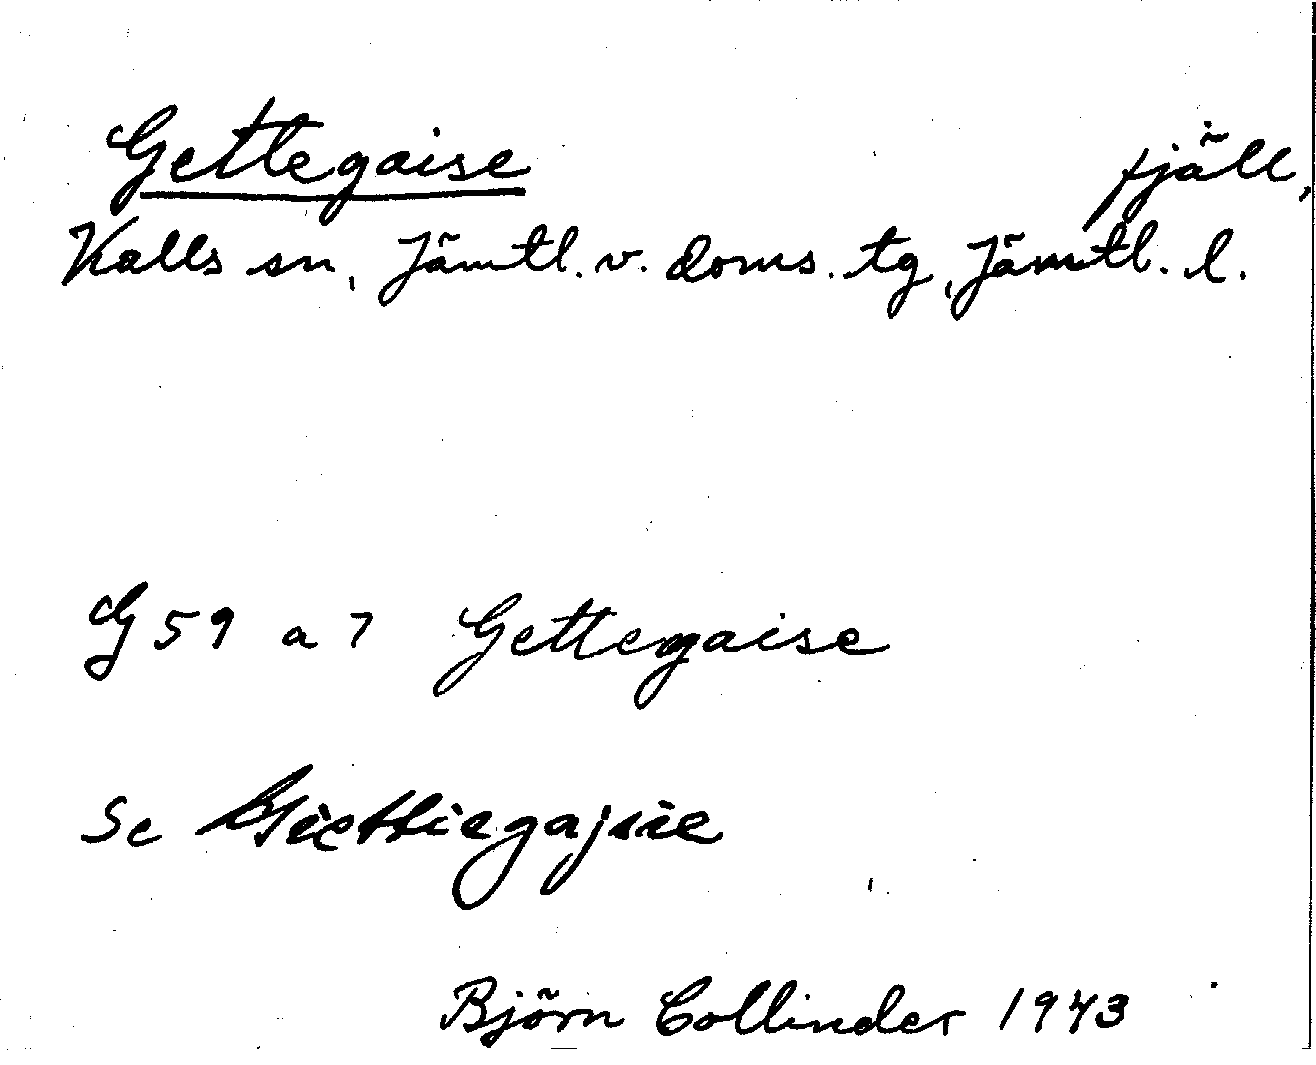 Gettegaise fjäll,
Kalls sn, Jämtl. v. doms. tg, Jämtl. l.
G 59 a 7 Gettegaise
Se Giettiegajsie
Björn Collinder 1943